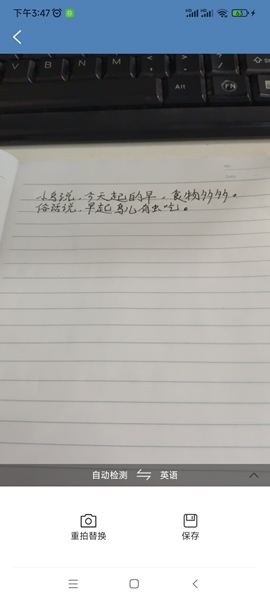 下午3:47
V B N M < >
Alt FN
小鸟说,今天起的早,食物多多。
俗话说,早起鸟儿有虫吃。
自动检测 英语
重拍替换 保存